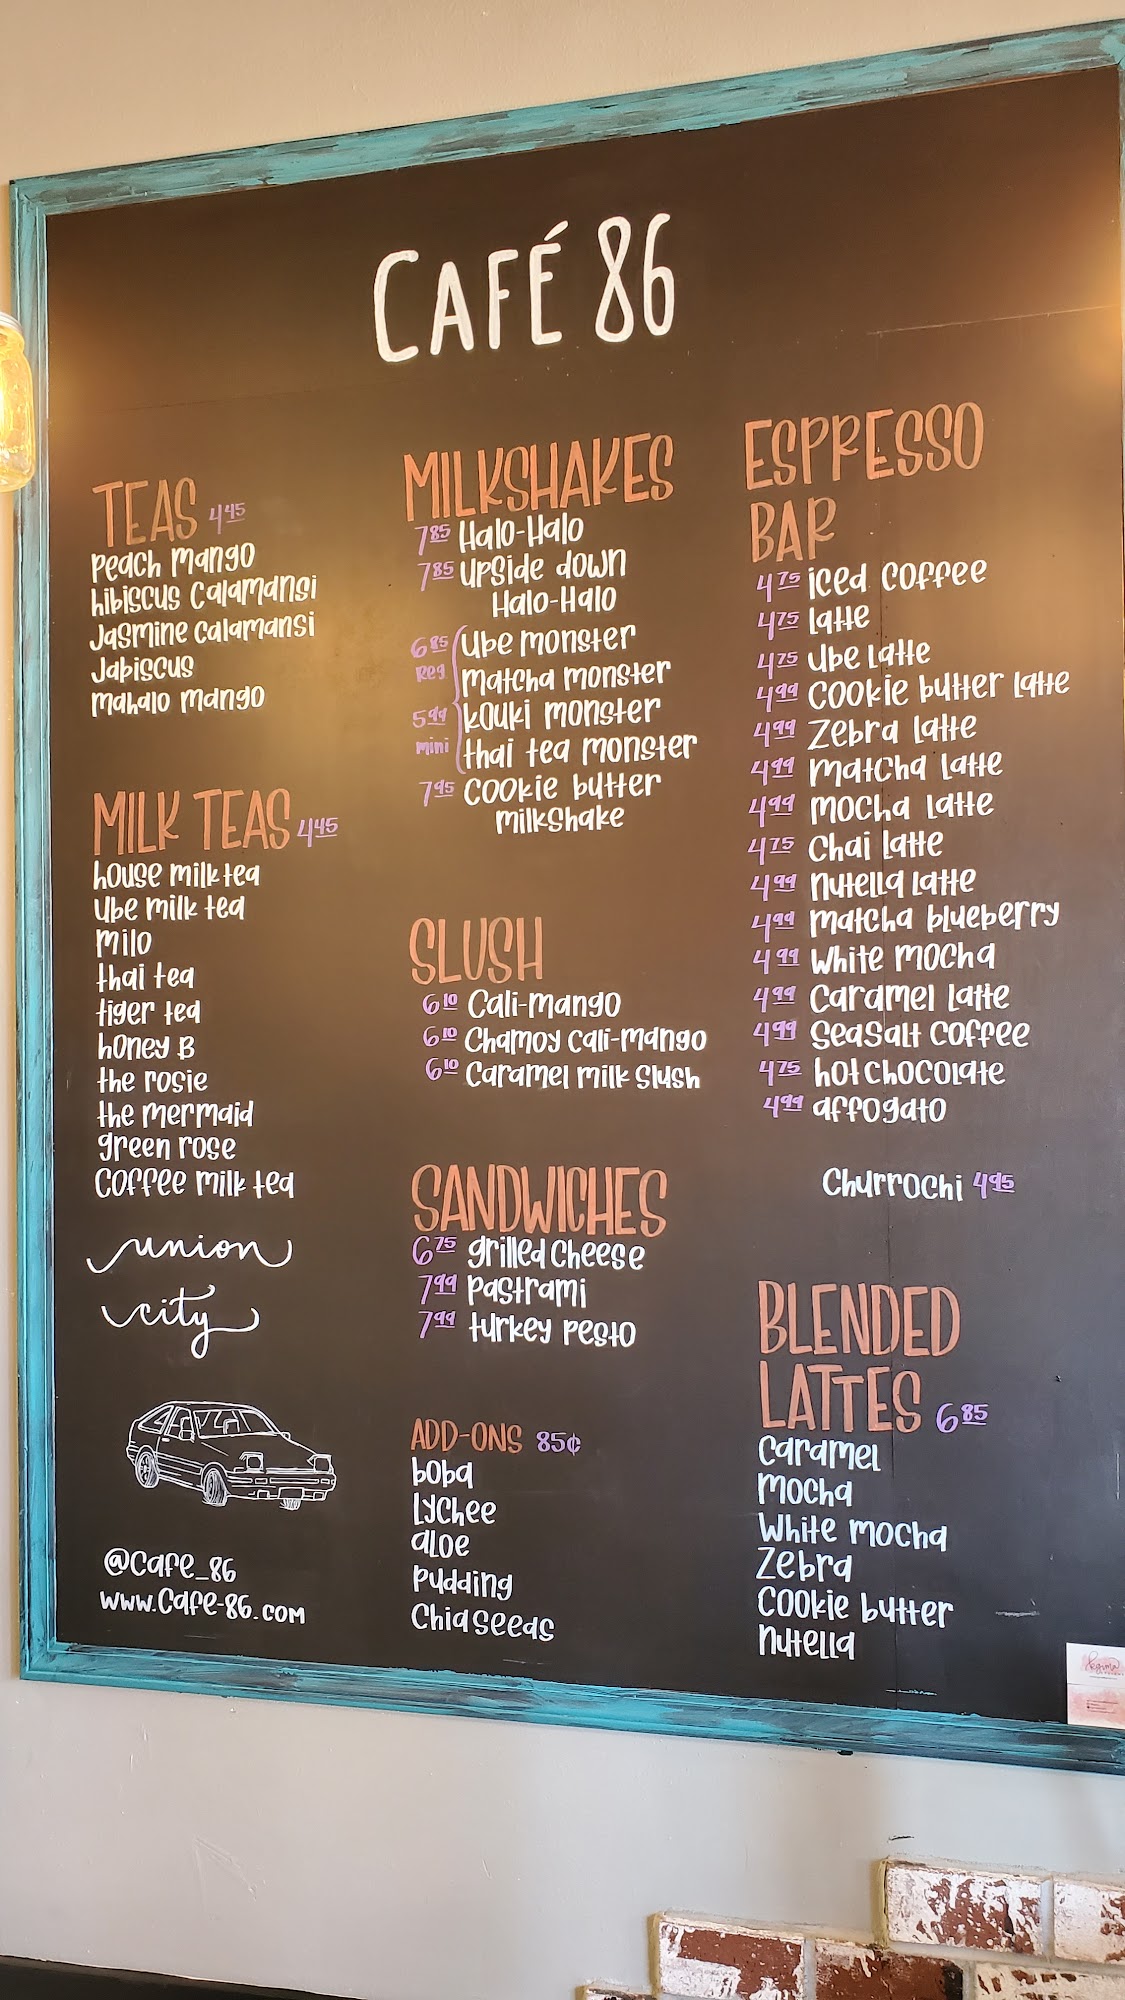 CAFÉ 86
TEAS 4.45
Peach Mango
hibiscus Calamansi
Jasmine Calamansi
Jabiscus
Mahalo Mango
MILK TEAS 4.45
house milk tea
Ube milk tea
Milo
thai tea
tiger tea
honey B
the rosie
the mermaid
green rose
Coffee milk tea
union
city
@Cafe_86
www.Cafe-86.com
MILKSHAKES
7.85 Halo-Halo
7.85 Upside down
Halo-Halo
6.85 Ube monster
Reg. Matcha monster
5.99 Kouki monster
mini thai tea monster
7.95 Cookie butter
milkshake
SLUSH
6.10 Cali-mango
6.10 Chamoy Cali-mango
6.10 Caramel milk Slush
SANDWICHES
6.75 grilled Cheese
7.99 Pastrami
7.99 turkey Pesto
ADD-ONS 85¢
boba
Lychee
aloe
Pudding
Chia Seeds
ESPRESSO
BAR
4.75 iced coffee
4.75 latte
4.75 Ube latte
4.99 Cookie butter latte
4.99 Zebra latte
4.99 Matcha latte
4.99 Mocha latte
4.75 Chai latte
4.99 nutella latte
4.99 Matcha blueberry
4.99 White mocha
4.99 Caramel latte
4.99 Seasalt Coffee
4.75 hot chocolate
4.99 affogato
Churrochi 4.95
BLENDED
LATTES 6.85
Caramel
Mocha
White mocha
Zebra
Cookie butter
nutella